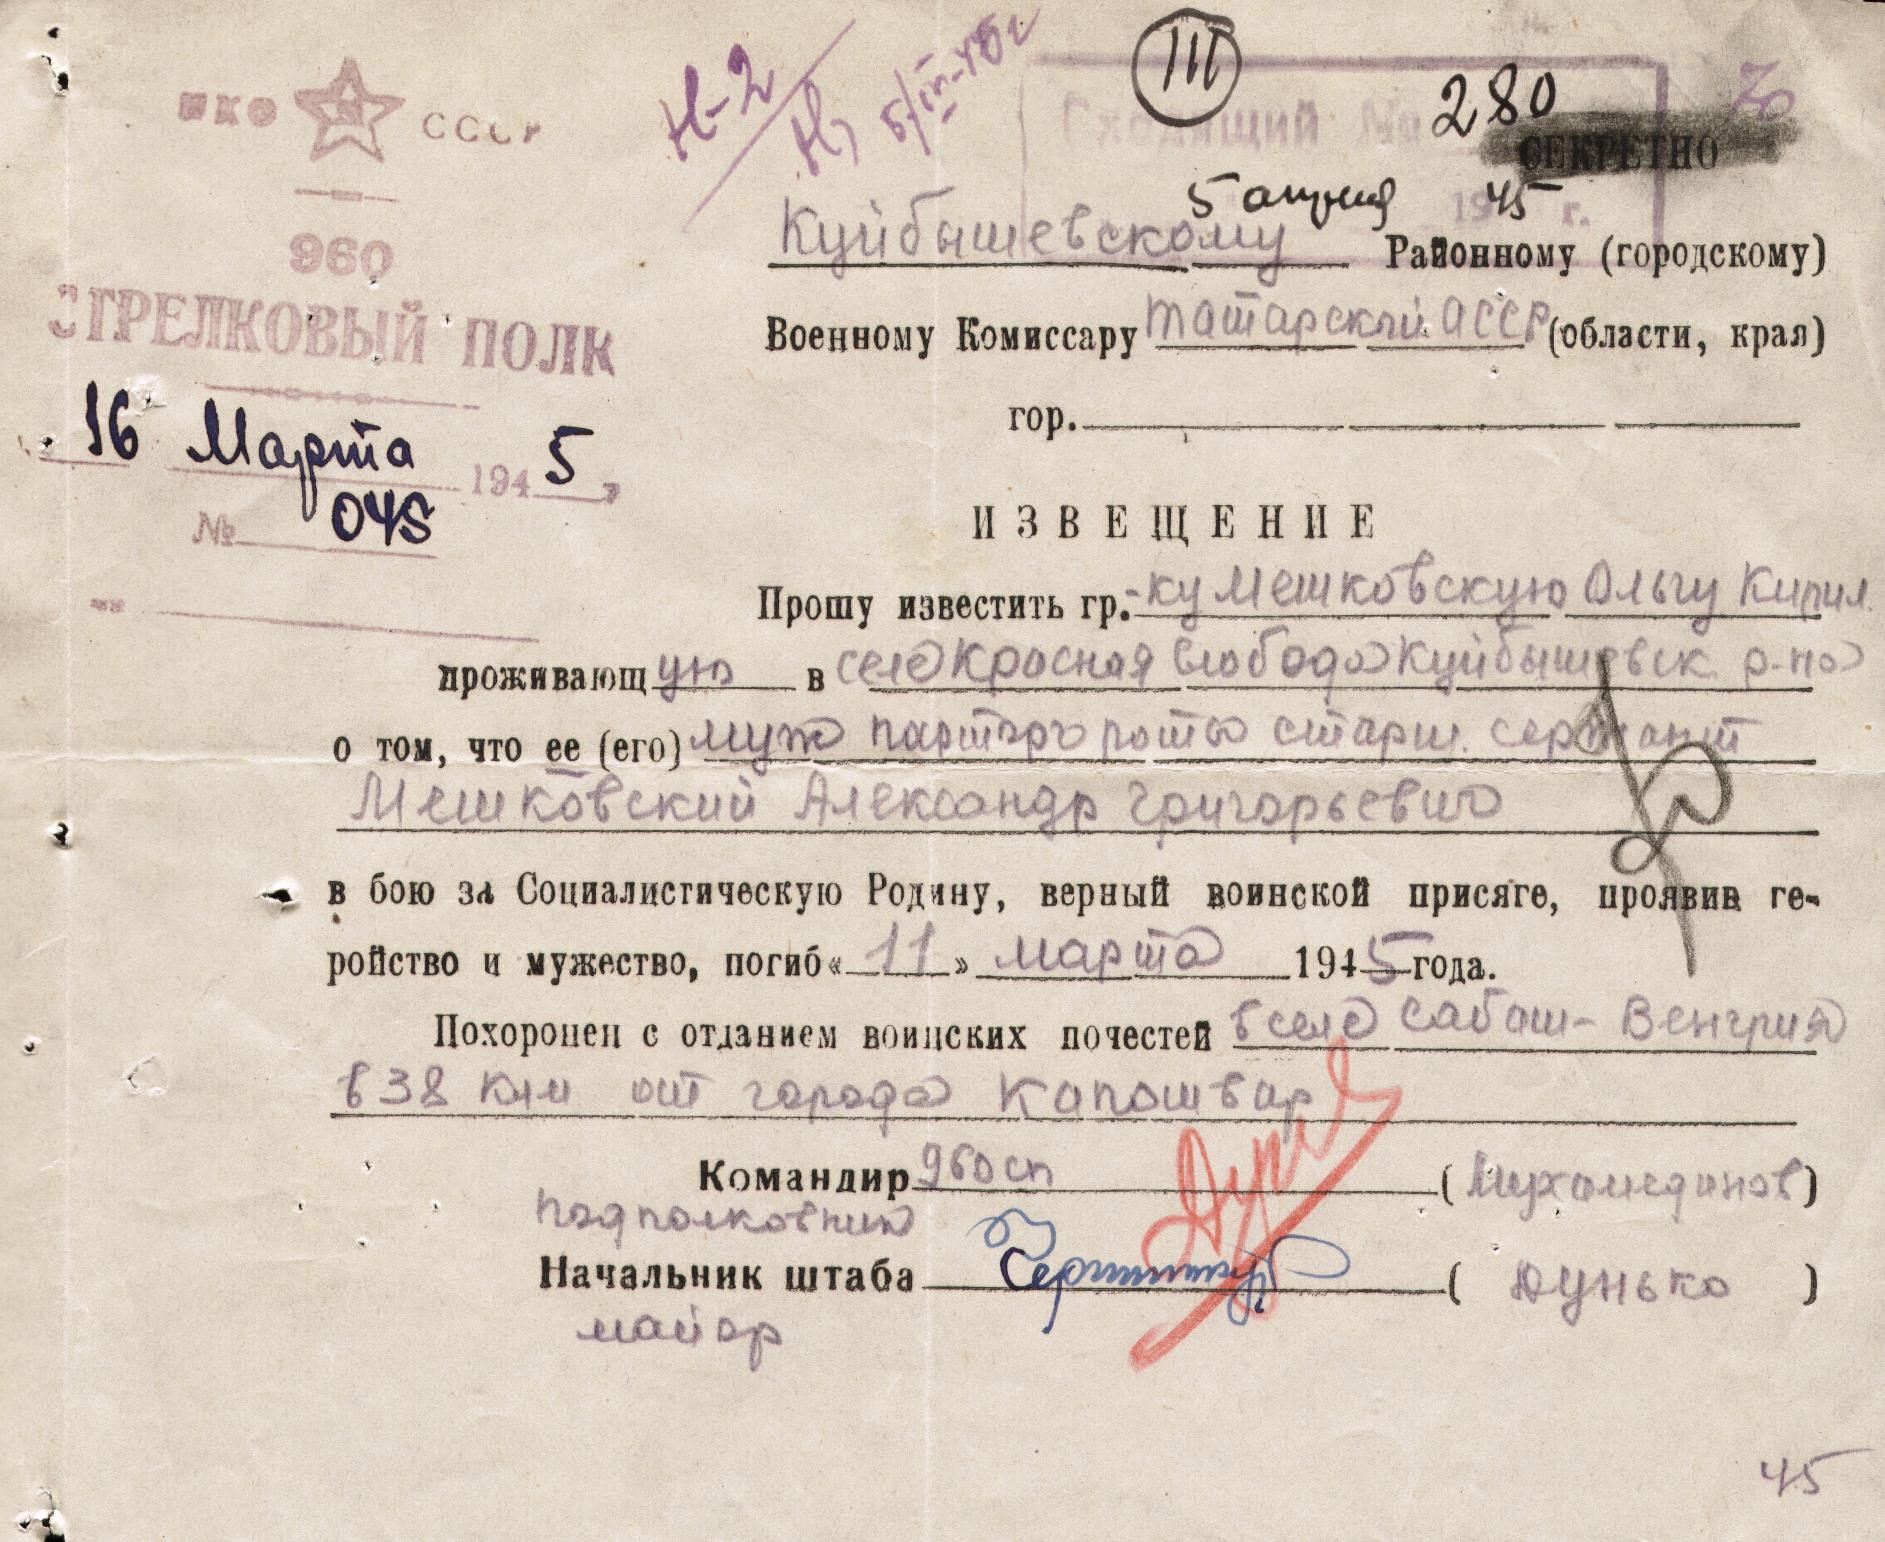 НКО СССР
960
СТРЕЛКОВЫЙ ПОЛК
16 Марта 1945
№ 045
Н-2
III
Входящий №
280
СЕКРЕТНО
5 апреля 1945 г.
Куйбышевскому Районному (городскому)
Военному Комиссару Татарской АССР (области, края)
гор.
ИЗВЕЩЕНИЕ
Прошу известить гр.-ку Мешковскую Ольгу Кирил.
проживающую в селе Красная слобода Куйбышевск. р-на
о том, что ее (его) муж парторг роты старш. сержант
Мешковский Александр Григорьевич
в бою за Социалистическую Родину, верный воинской присяге, проявив ге-
ройство и мужество, погиб «11» марта 1945 года.
Похоронен с отданием воинских почестей в селе Сабаш - Венгрия
в 38 км от города Капошвар
Командир 960 сп (Мухамедянов)
подполковник
Начальник штаба (Дунько)
майор
45